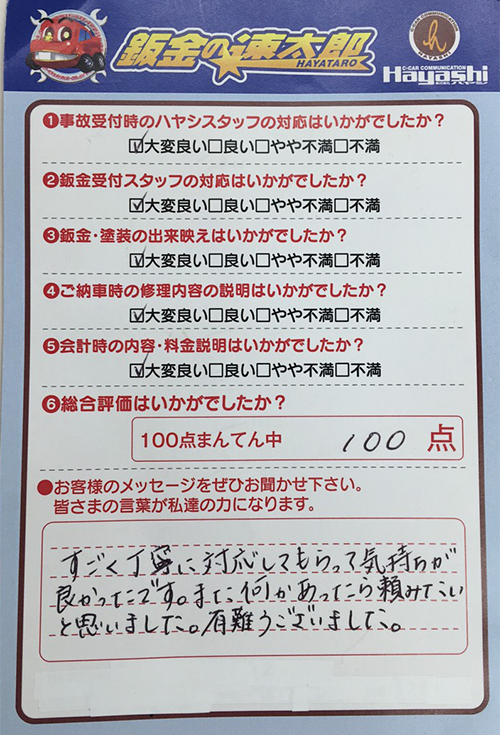 鈑金の速太郎
HAYATARO
h
HAYASHI
C-CAR COMMUNICATION
Hayashi
❶事故受付時のハヤシスタッフの対応はいかがでしたか?
☑大変良い□良い□やや不満□不満
❷鈑金受付スタッフの対応はいかがでしたか?
☑大変良い□良い□やや不満□不満
❸鈑金・塗装の出来映えはいかがでしたか?
☑大変良い□良い□やや不満□不満
❹ご納車時の修理内容の説明はいかがでしたか?
☑大変良い□良い□やや不満□不満
❺会計時の内容・料金説明はいかがでしたか?
☑大変良い□良い□やや不満□不満
❻総合評価はいかがでしたか?
100点まんてん中 100 点
●お客様のメッセージをぜひお聞かせ下さい。
皆さまの言葉が私達の力になります。
すごく丁寧に対応してもらって気持ちが
良かったです。また何かあったら頼みたい
と思いました。有難うございました。